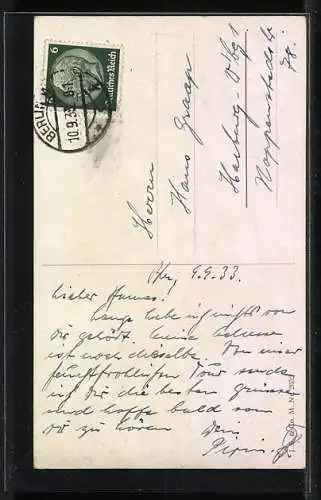 6
Deutsches Reich
BERLIN
10.9.33
Herrn
Hans Graap
Harburg-Wbg 1
Bln, 9.9.33.
Lieber Hannes!
Lange habe ich nichts von
Dir gehört. Meine Adresse
ist noch dieselbe. Von einer
feuchtfröhlichen Tour sende
ich Dir die besten Grüsse
und hoffe bald von
Dir zu hören
Dein